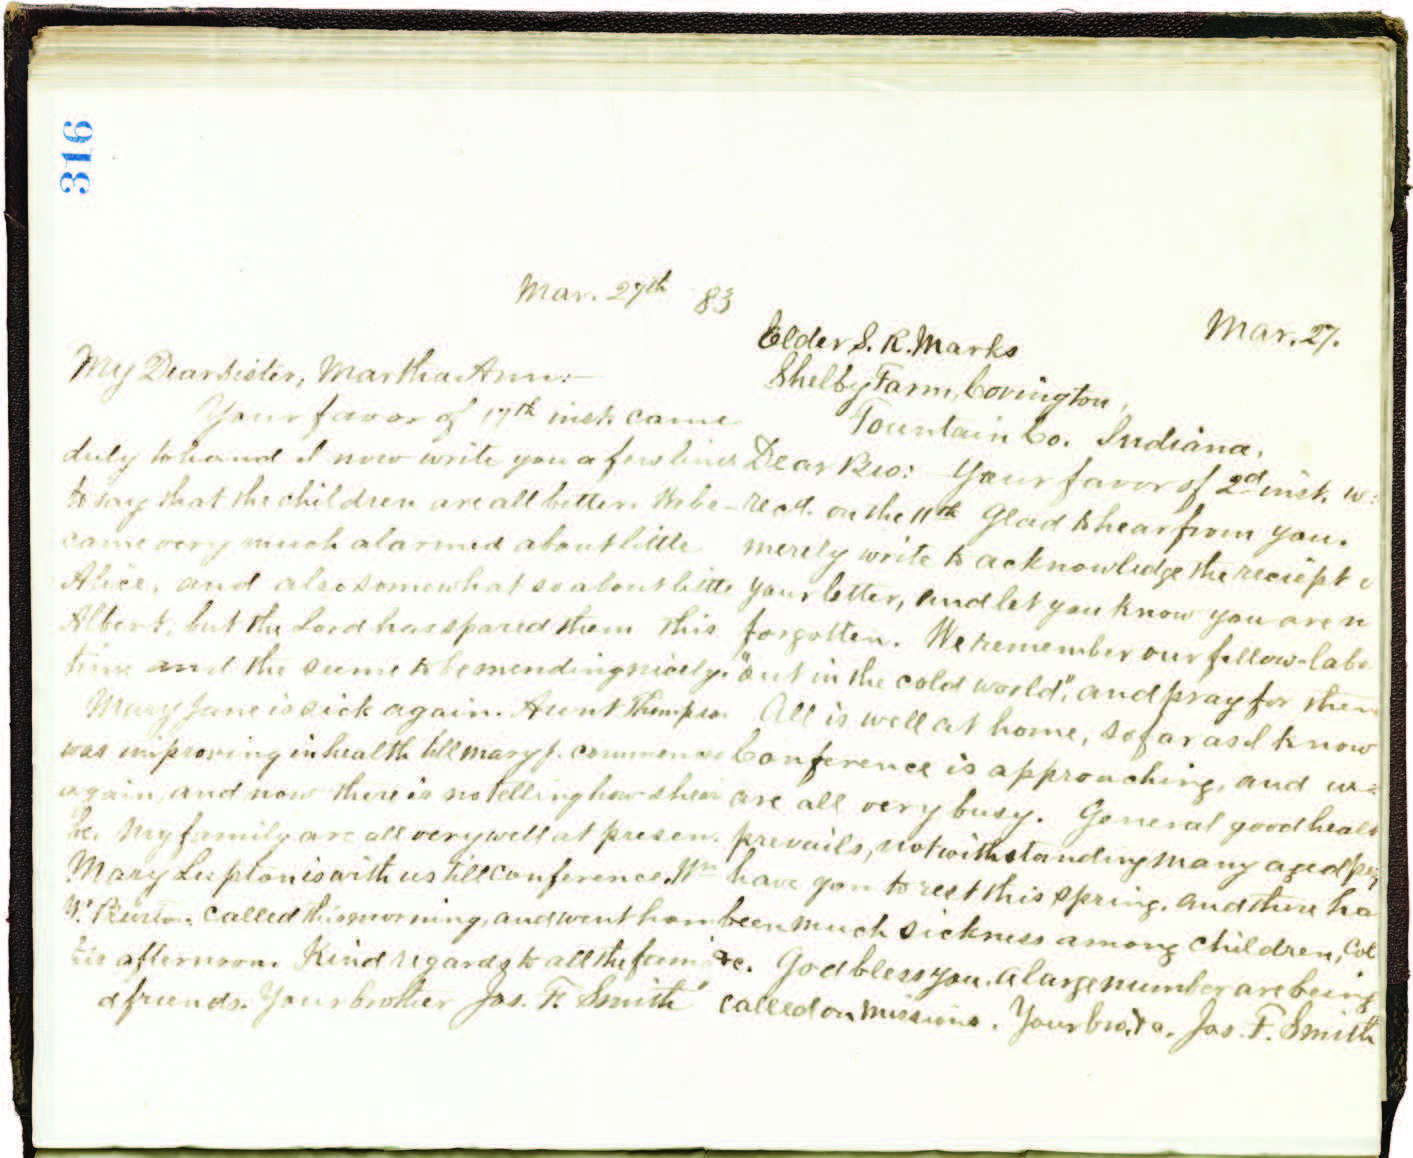 316
Mar. 27th 83
My Dear Sister, Martha Ann:—
Your favor of 17th inst. came
duly to hand I now write you a few lines
to say that the children are all better. We be-
came very much alarmed about little
Alice, and also somewhat so about little
Albert, but the Lord has spared them this
time and the seeme to be mending nicely.
Mary Jane is sick again. Aunt Thompson
was improving in health till Mary J. commenced
again, and now there is no telling how she
be. My family are all very well at presen.
Mary Lupton is with us till conference. Wm
W. called this morning, and went hom
afternoon. Kind regards to all the fami
d friends. Your brother Jos. F. Smith
Mar. 27.
Elder S. R. Marks
Shelby Farm, Covington,
Fountain Co. Indiana,
Dear Bro: Your favor of 2d inst. w
recd. on the 11th Glad to hear from you.
merely write to acknowledge the reciept
your letter, and let you know you are n
forgotten. We remember our fellow-labo
"out in the cold world", and pray for them
All is well at home, so far as I know
Conference is approaching, and we
are all very busy. General good healt
prevails, notwithstanding many aged peo
have gon to rest this spring. and there ha
been much sickness among children, Col
&c. God bless you. A large number are being
called on missions. Your bro. &c. Jos. F. Smith